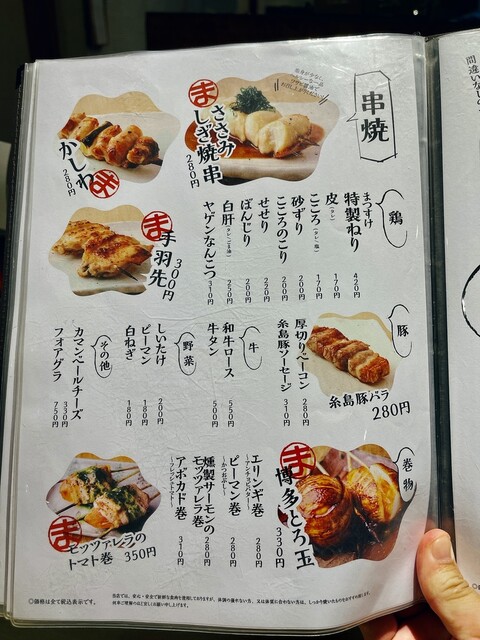 串焼
ま
ささみ
しぎ焼串
280円
かしわ
280円
ま
ま
手羽先
300円
鶏
まつすけ
特製ねり
420円
皮(タレ)
170円
こころ(タレ、塩)
170円
砂ずり
200円
こころのこり
200円
せせり
220円
ぼんじり
200円
白肝(タレ、ごま油)
250円
ヤゲンなんこつ
310円
豚
糸島豚バラ
280円
厚切りベーコン
280円
糸島豚ソーセージ
310円
牛
和牛ロース
550円
牛タン
500円
野菜
しいたけ
200円
ピーマン
180円
白ねぎ
180円
その他
カマンベールチーズ
330円
フォアグラ
750円
巻物
ま
博多とろ玉
330円
エリンギ巻
~アンチョビバター~
280円
ピーマン巻
~かつおぶし~
280円
燻製サーモンの
モッツァレラ巻
280円
アボカド巻
~フレッシュトマト~
310円
ま
モッツァレラの
トマト巻 350円
◎価格は全て税込表示です。